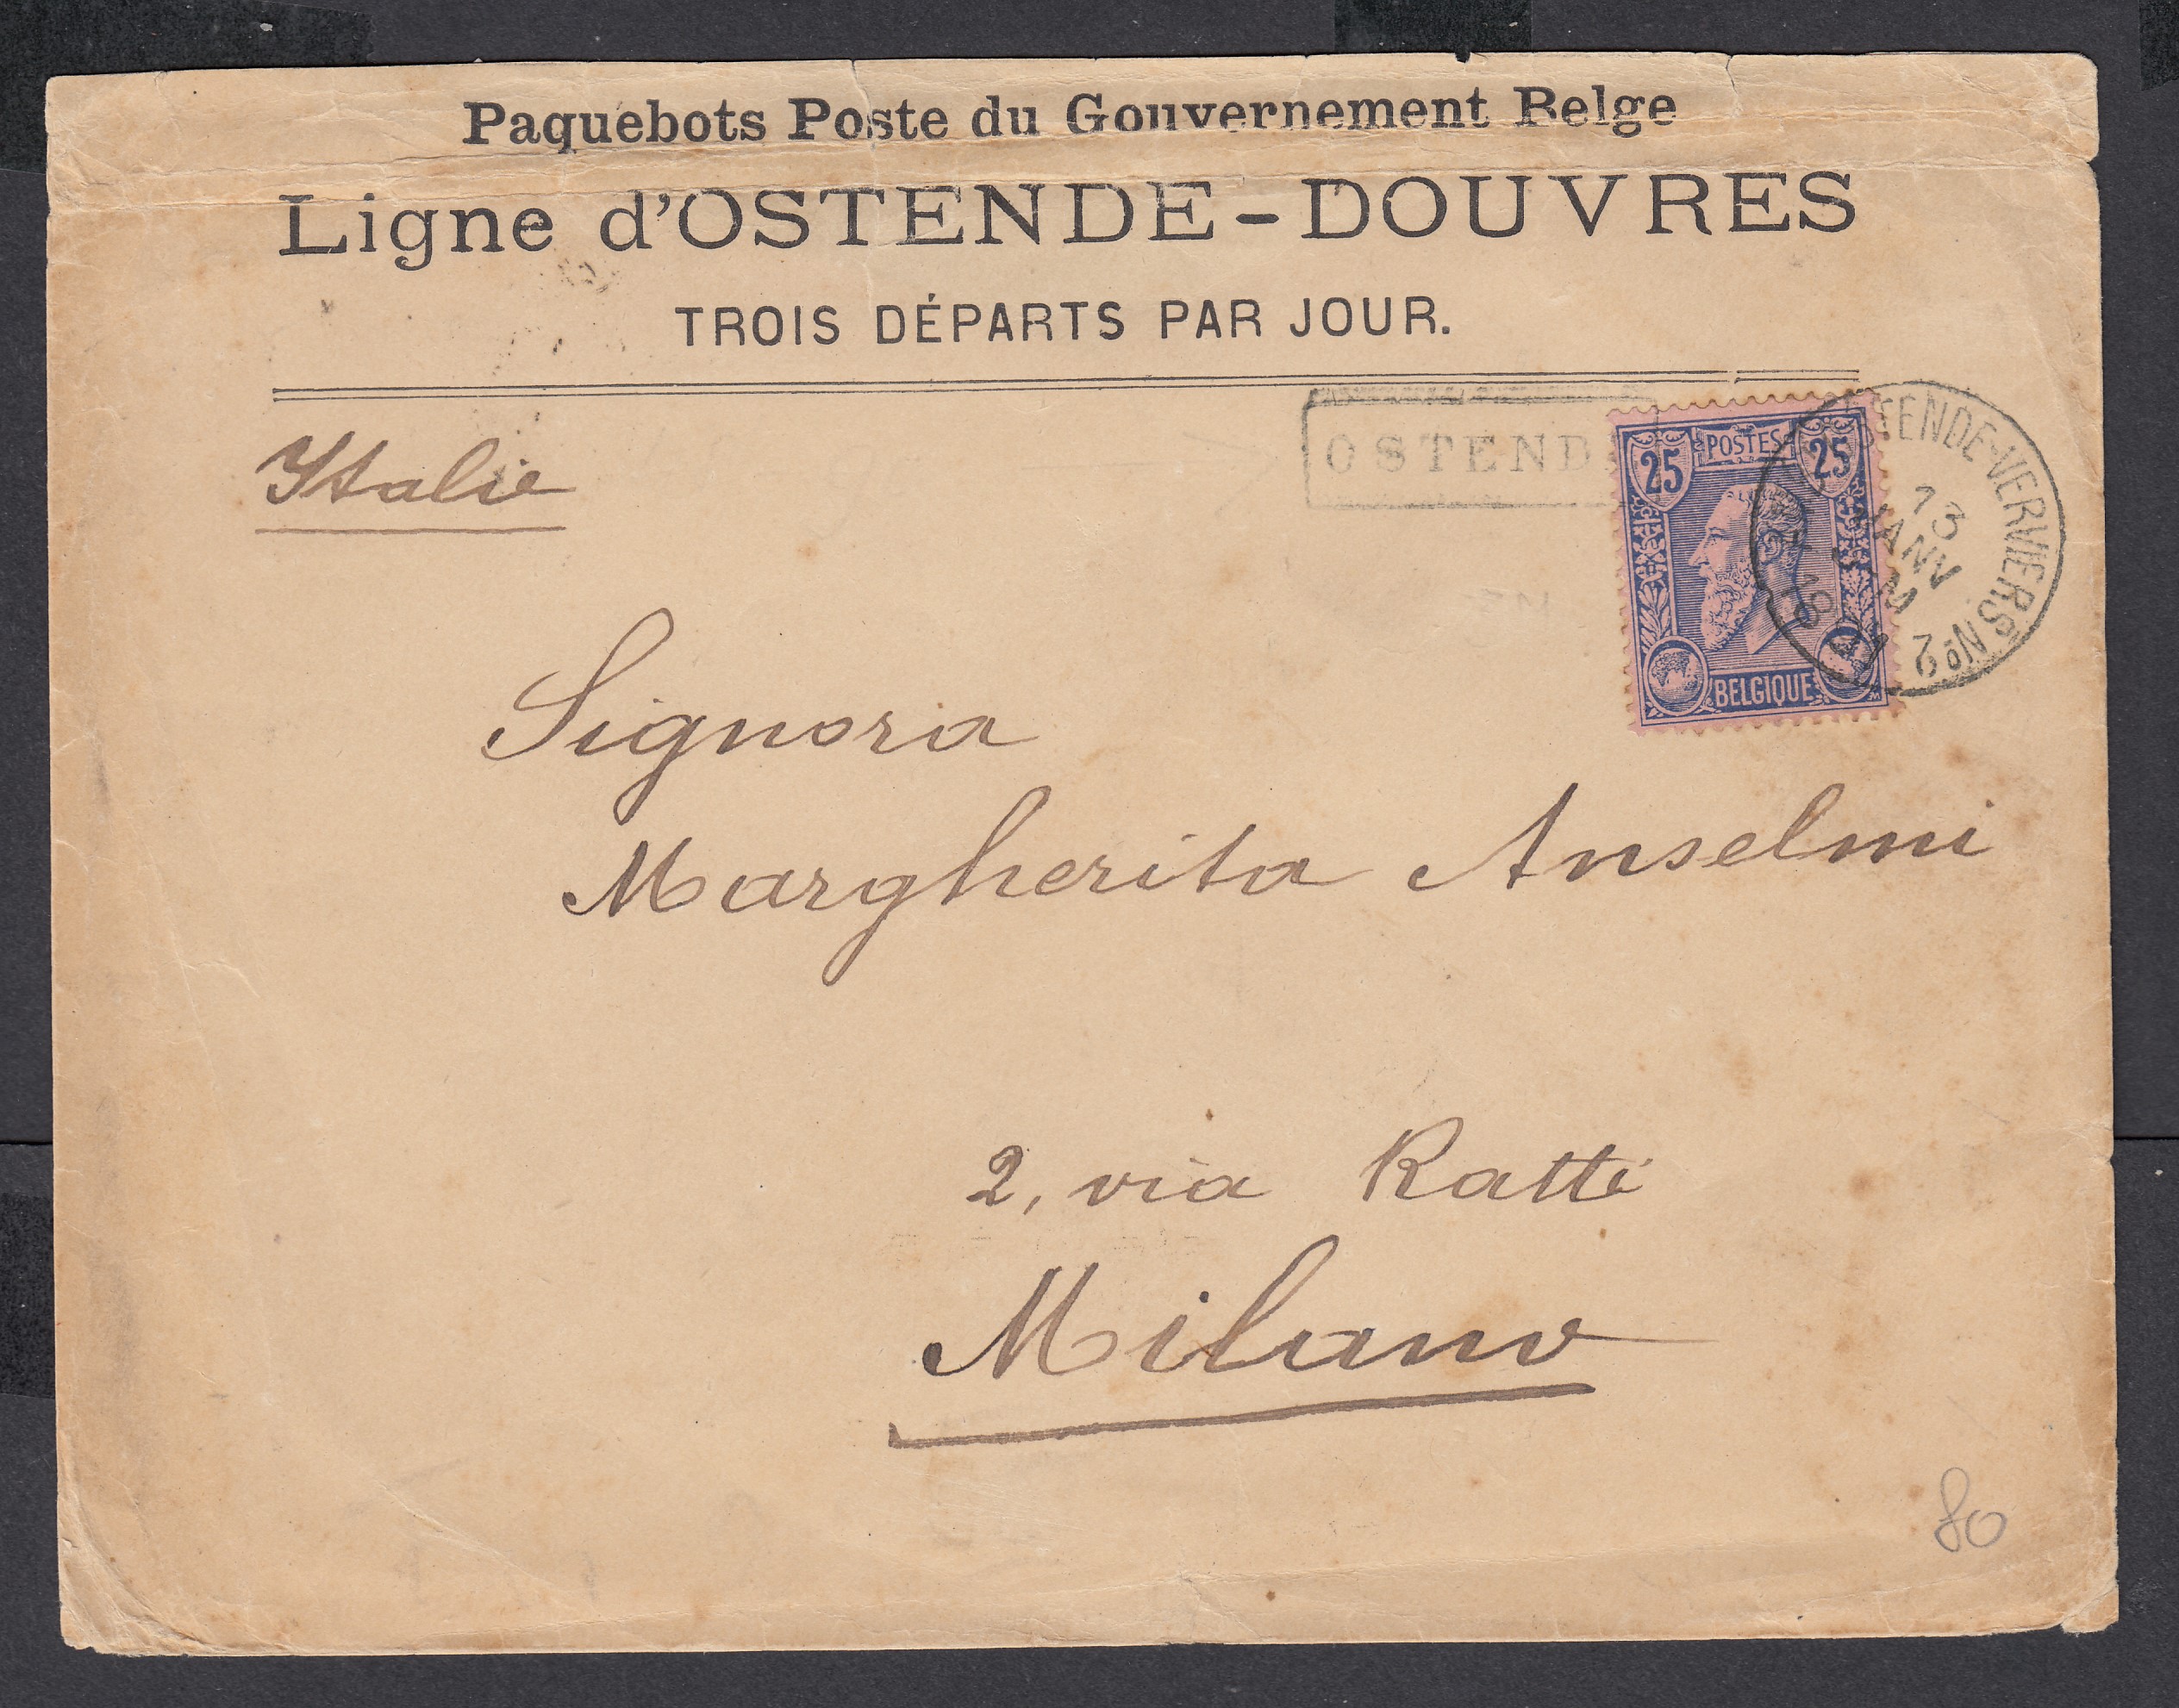 Paquebots Poste du Gouvernement Belge
Ligne d'OSTENDE-DOUVRES
TROIS DÉPARTS PAR JOUR.
Italie
OSTEND
25 POSTES 25
BELGIQUE
STENDE-VERVIERS Nº 2
13
JANV
M
Signora
Margherita Anselmi
2, via Ratti
Milano
80